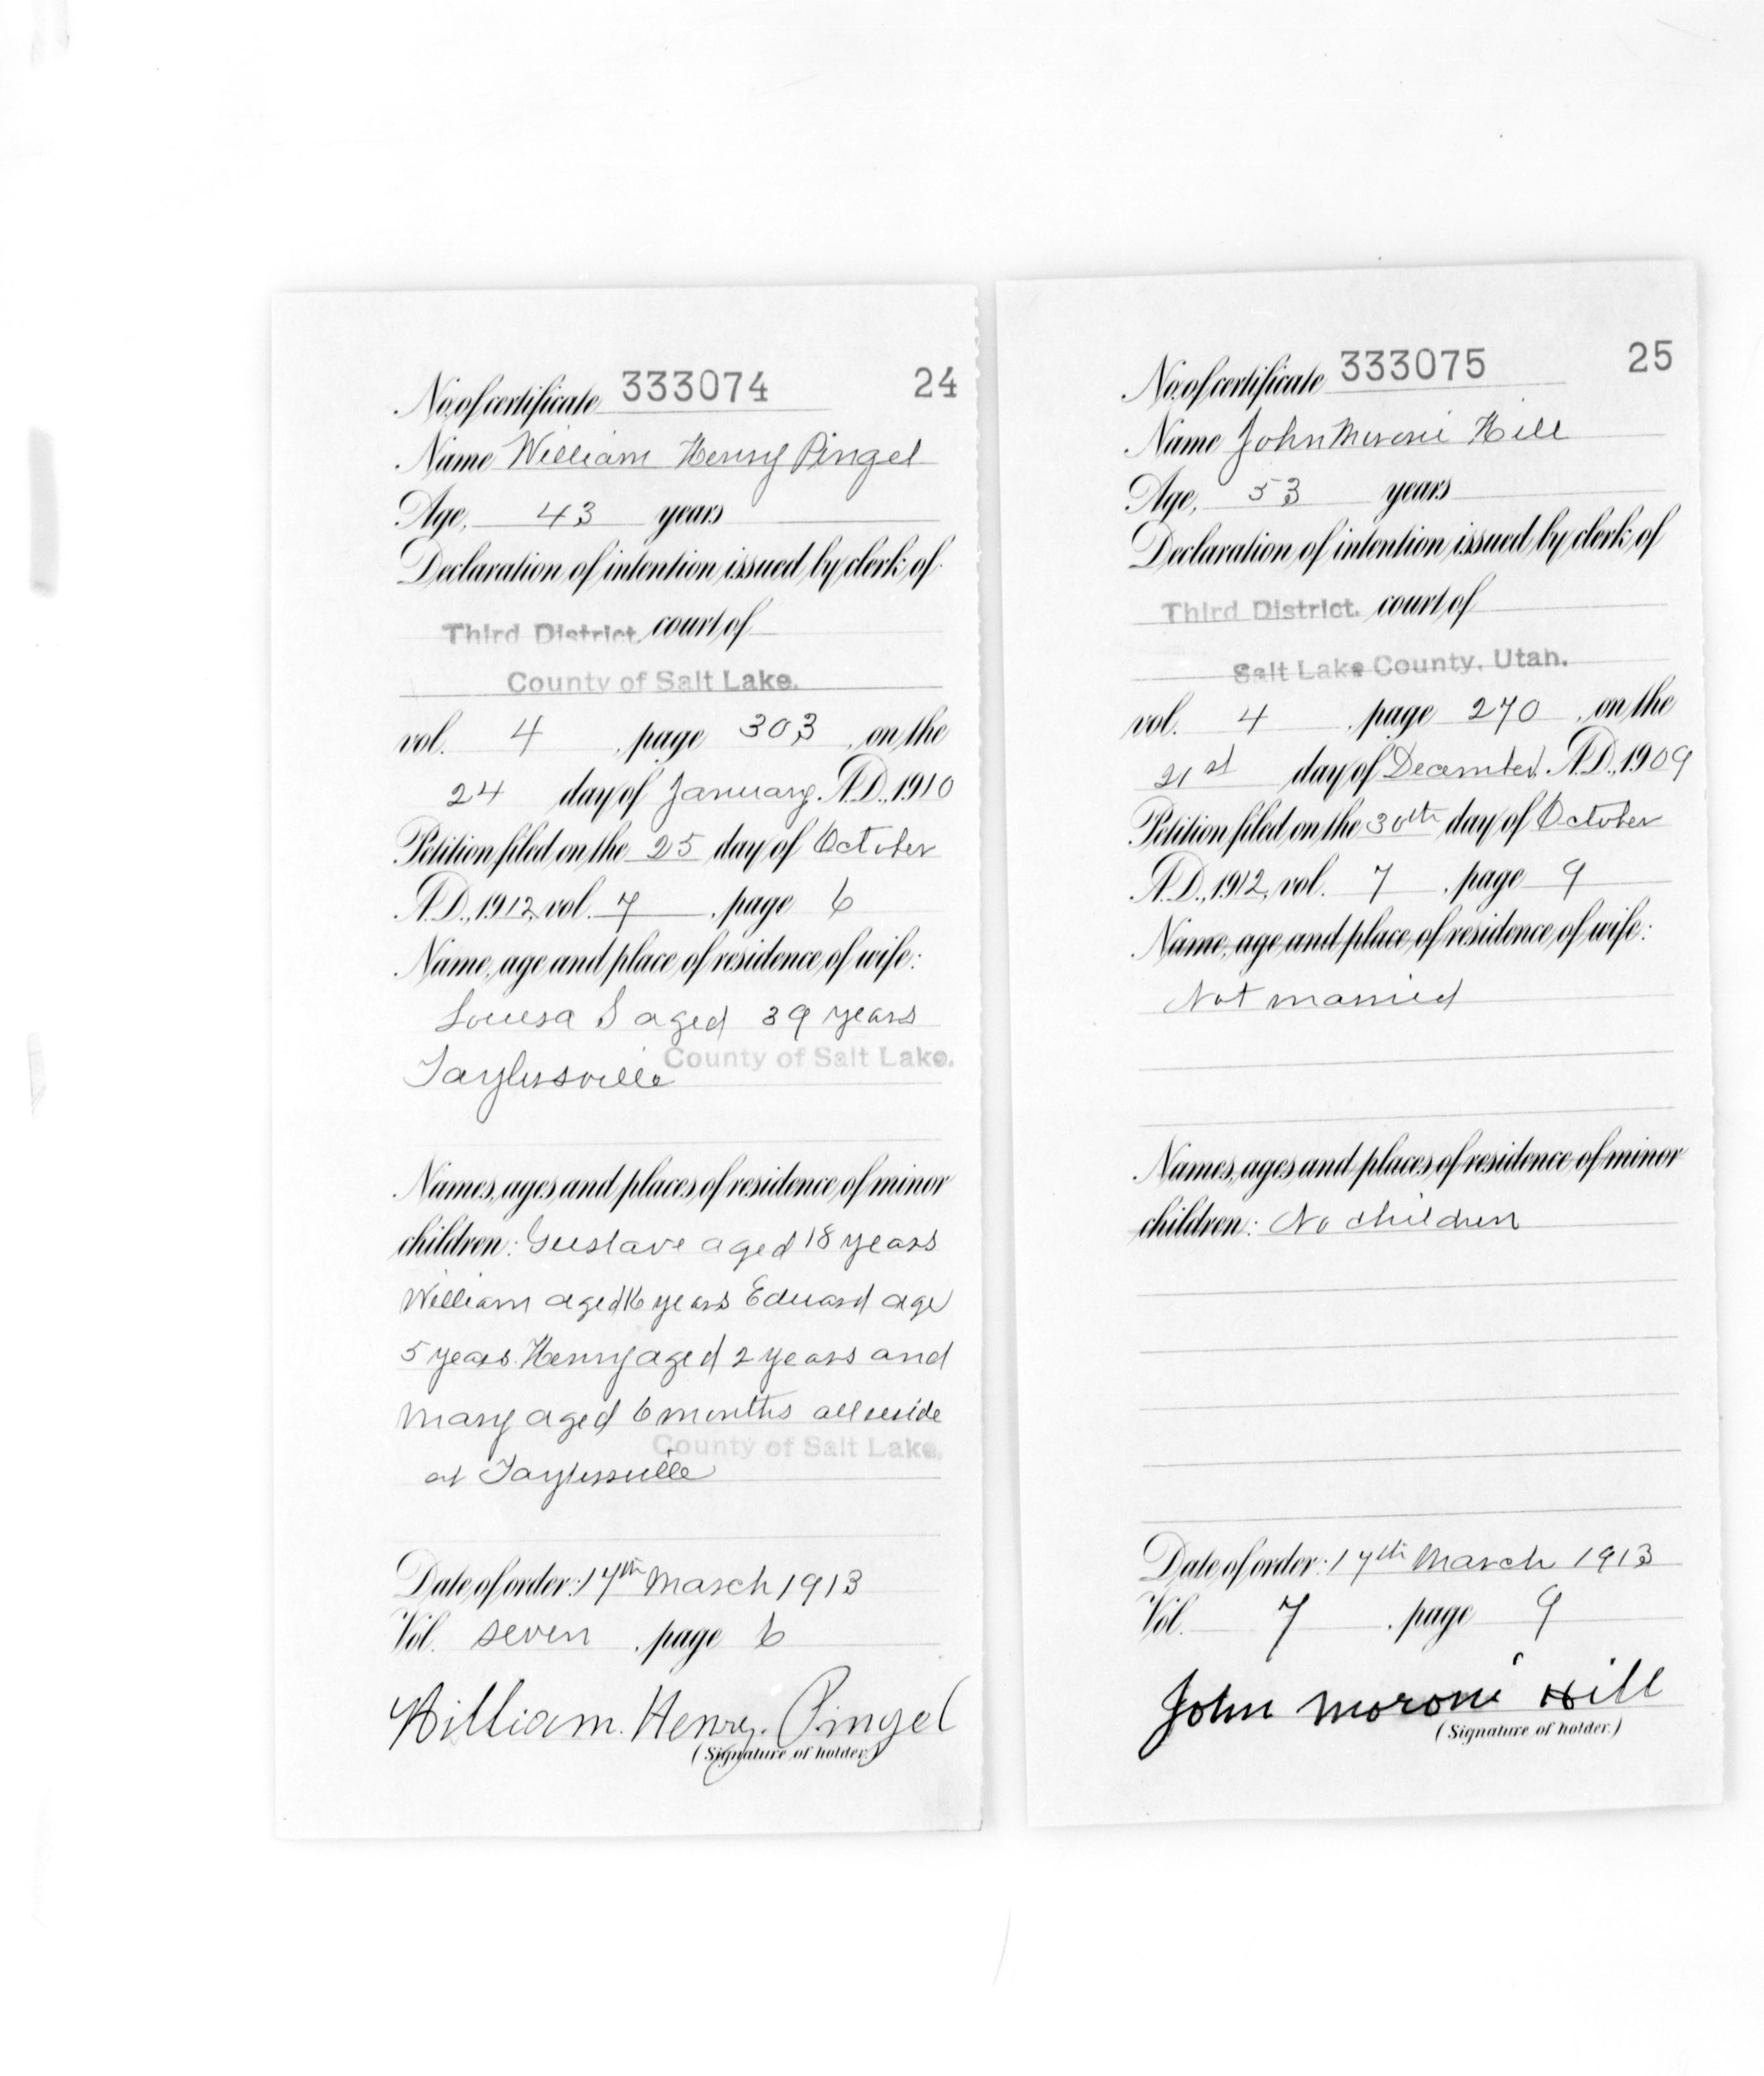 No. of certificate 333074 24
Name William Henry Pingel
Age, 43 years
Declaration of intention issued by clerk of
Third District. court of
County of Salt Lake.
vol. 4 , page 303 , on the
24 day of January, A.D., 1910
Petition filed on the 25 day of October
A.D., 1912, vol. 7 , page 6
Name, age and place of residence of wife:
Louesa S aged 39 years
County of Salt Lake.
Taylorsville
Names, ages and places of residence of minor
children: Gustave aged 18 years
William aged 16 years Eduard age
5 years. Henry aged 2 years and
Mary aged 6 months all reside
County of Salt Lake.
at Taylorsville
Date of order: 17th March 1913
Vol. seven , page 6
William. Henry. Pingel
(Signature of holder.)
No. of certificate 333075 25
Name John Moroni Hill
Age, 53 years
Declaration of intention issued by clerk of
Third District. court of
Salt Lake County, Utah.
vol. 4 , page 270 , on the
21st day of December, A.D., 1909
Petition filed on the 30th day of October
A.D., 1912, vol. 7 , page 9
Name, age and place of residence of wife:
Not married
Names, ages and places of residence of minor
children: No children
Date of order: 17th March 1913
Vol. 7 , page 9
John Moroni Hill
(Signature of holder.)